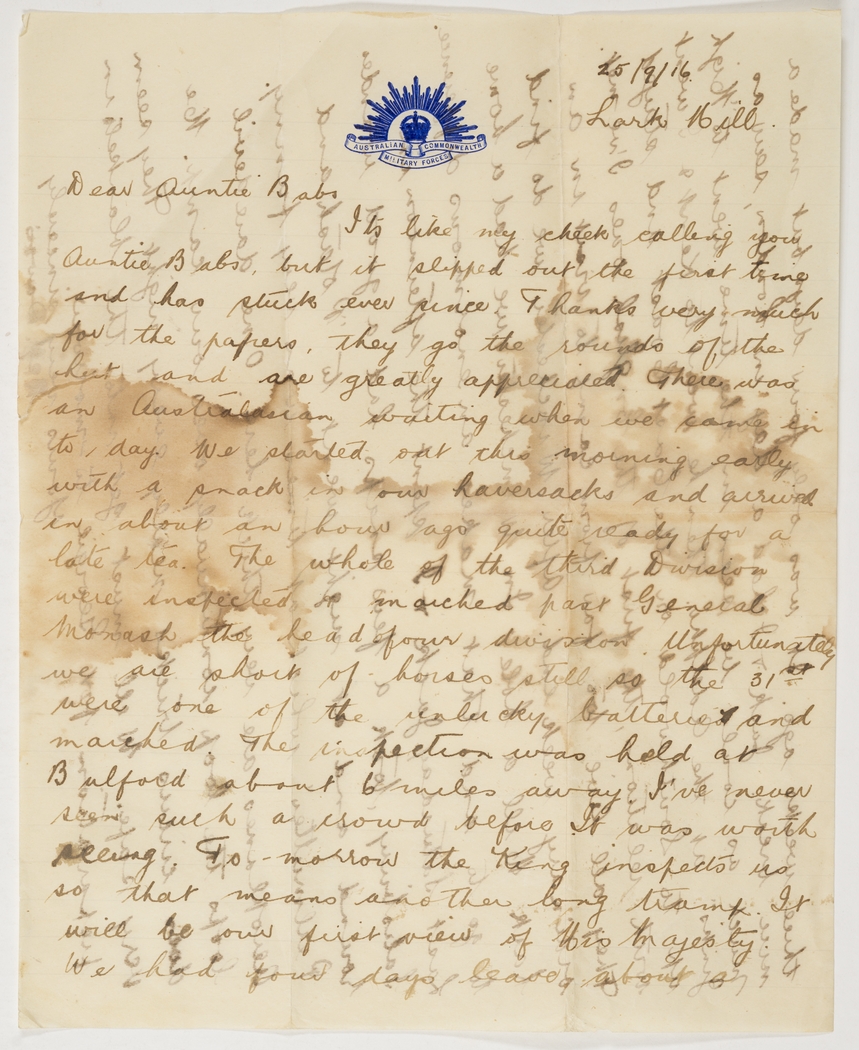 25/9/16.
Lark Hill.
AUSTRALIAN COMMONWEALTH
MILITARY FORCES
Dear Auntie Babs
Its like my cheek calling you
Auntie Babs, but it slipped out the first time
and has stuck ever since Thanks very much
for the papers, they go the rounds of the
hut and are greatly appreciated. There was
an Australasian waiting when we came in
to day. We started out this morning early
with a snack in our haversacks and arrived
in about an hour ago quite ready for a
late tea. The whole of the third Division
were inspected & marched past General
Monash the head of our division. Unfortunately
we are short of horses still so the 31st
were one of the unlucky batteries and
marched. The inspection was held at
Bulford about 6 miles away. I've never
seen such a crowd before It was worth
seeing. To-morrow the King inspects us
so that means another long tramp. It
will be our first view of His Majesty.
We had four days leave, about a